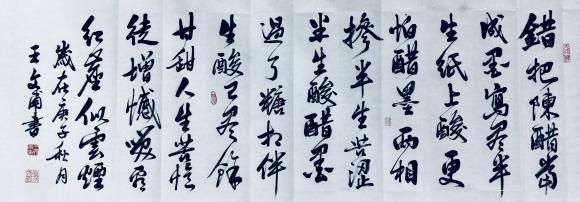 錯把陳醋當
成墨寫盡半
生紙上酸更
怕醋墨兩相
摻半生苦澀
半生酸醋墨
過了糖相伴
生酸已盡餘
甘甜人生苦憶
徒增憾
紅塵似雲煙
歲在庚子秋月
王
書